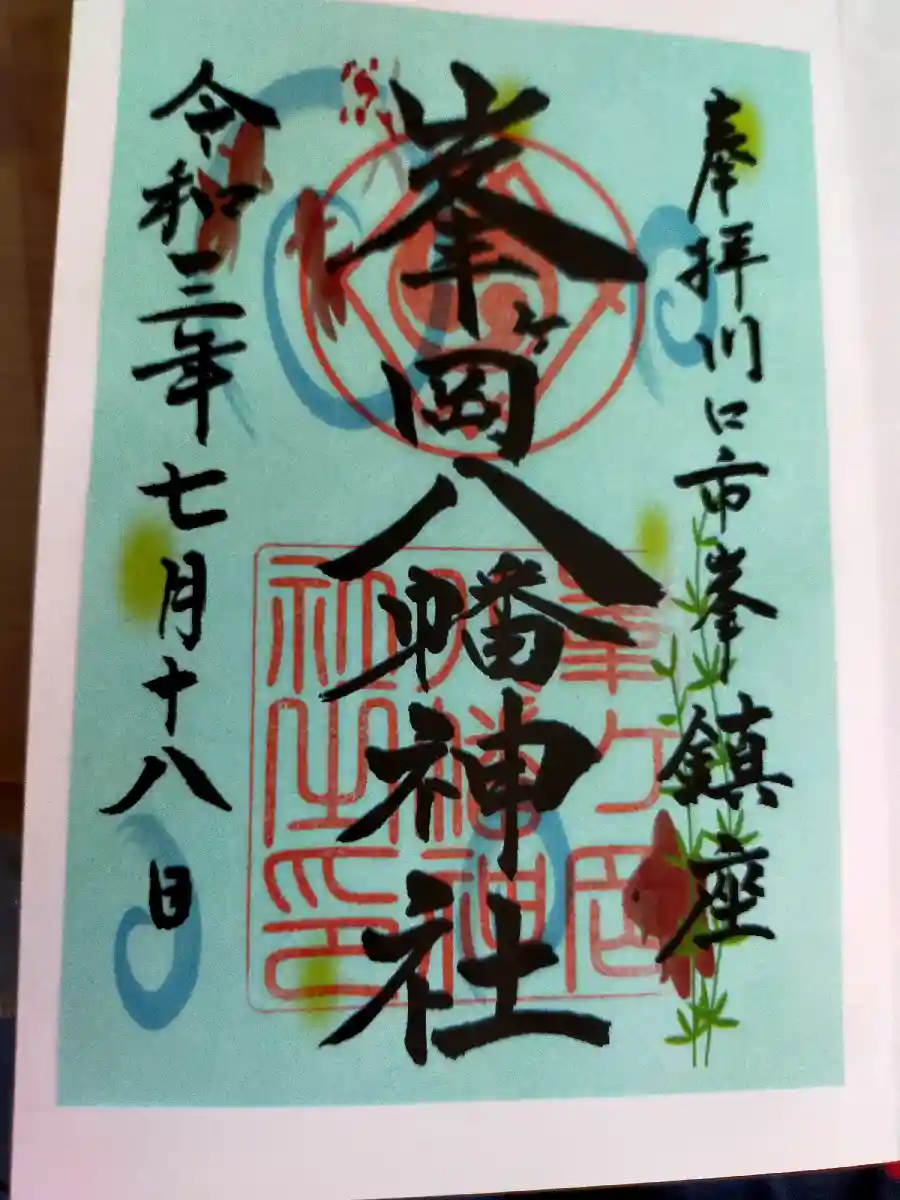 奉拝川口市峯鎮座
峯ヶ岡八幡神社
令和三年七月十八日
峯ヶ岡
八幡神
社之印